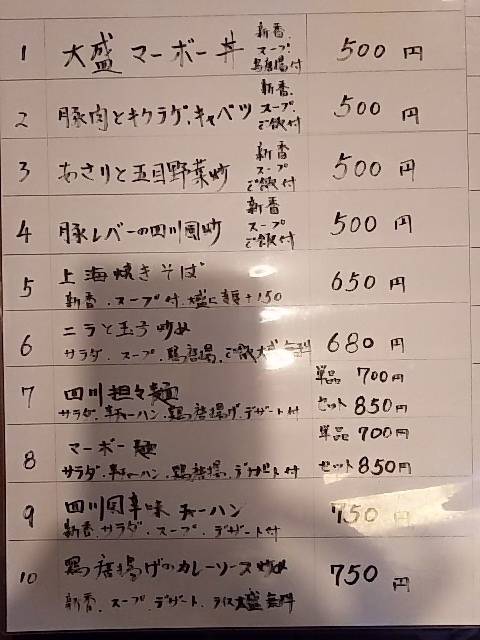 1 大盛 マーボー丼 新香. スープ. 鶏唐揚付 500円
2 豚肉とキクラゲ.キャベツ 新香. スープ. ご飯付 500円
3 あさりと五目野菜炒 新香 スープ ご飯付 500円
4 豚レバーの四川風炒 新香 スープ ご飯付 500円
5 上海焼きそば 650円
新香.スープ付.大盛に +150
6 ニラと玉子炒め 680円
サラダ.スープ.鶏唐揚.ご飯大盛無料
7 四川担々麺 単品 700円
サラダ.半チャーハン.鶏唐揚げ.デザート付 セット 850円
8 マーボー麺 単品 700円
サラダ.半チャーハン.鶏唐揚げ.デザート付 セット 850円
9 四川風辛味チャーハン 750円
新香.サラダ.スープ.デザート付
10 鶏唐揚げのカレーソース炒め 750円
新香.スープ.デザート.ライス大盛無料